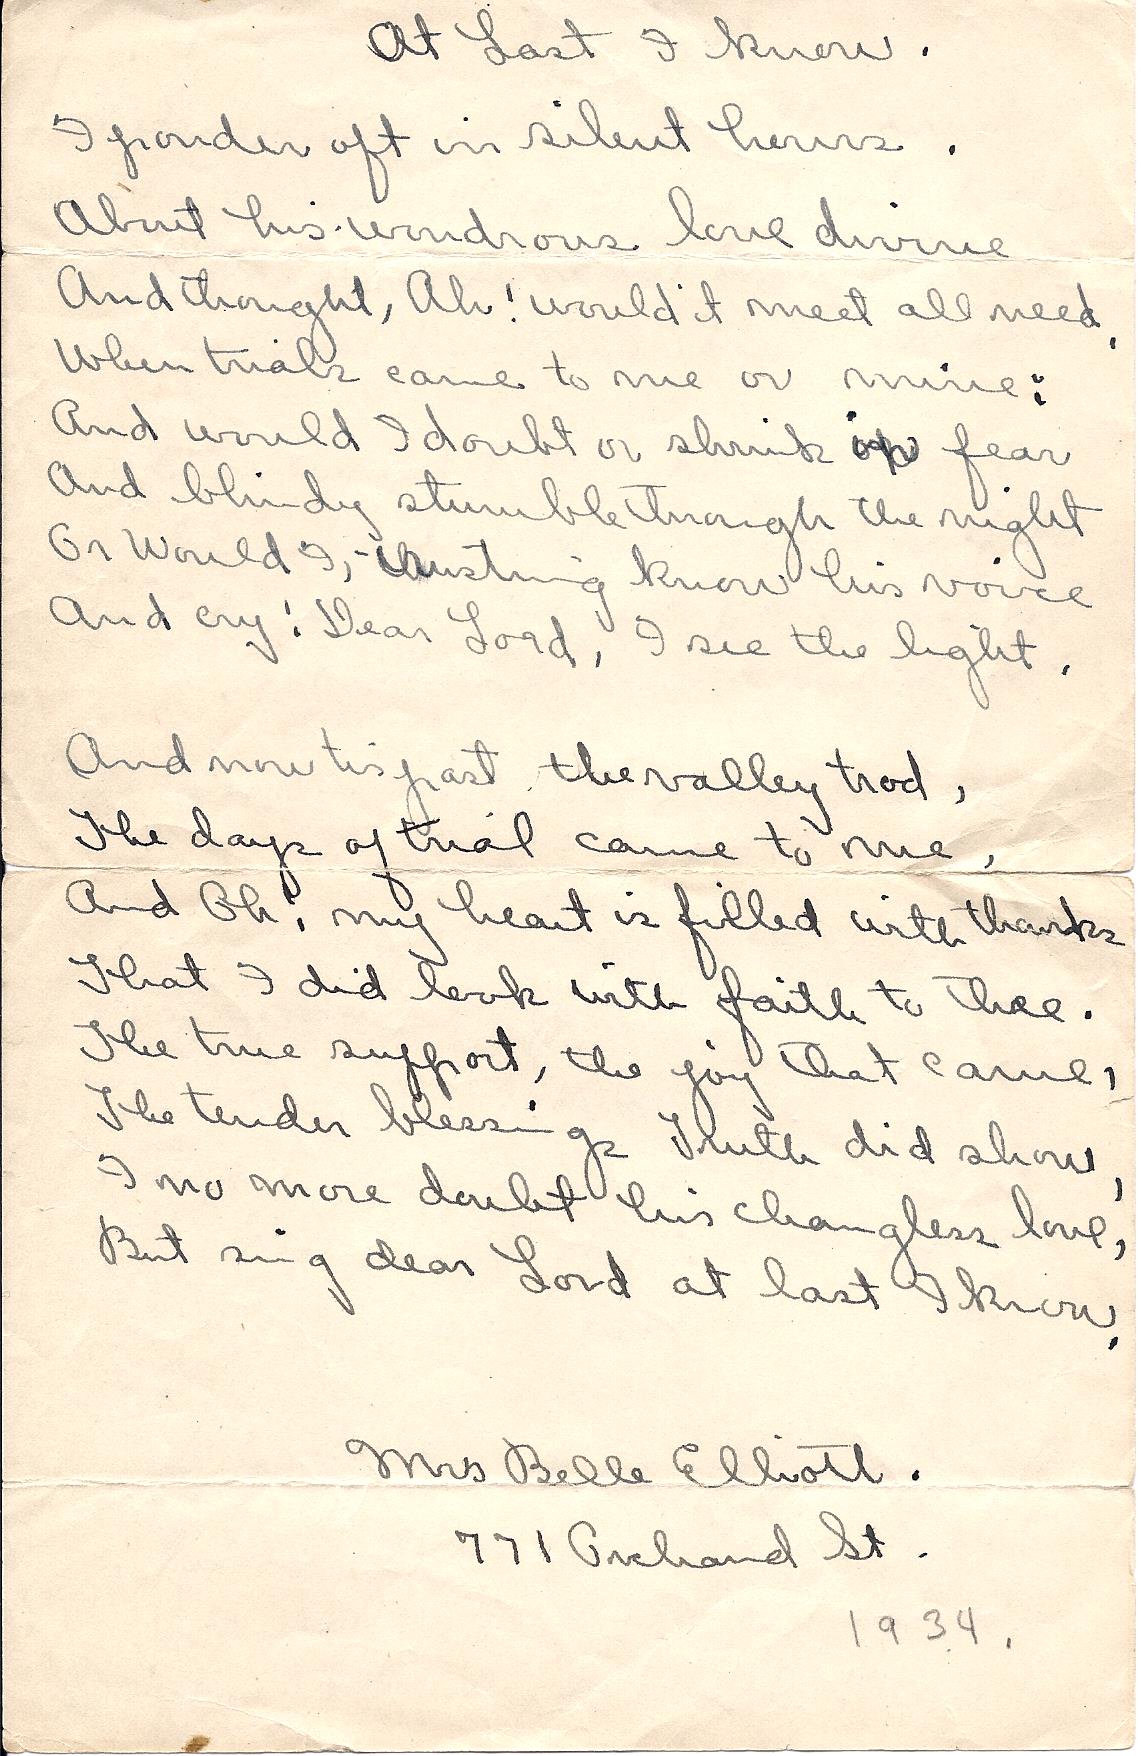 At Last I know.
I ponder oft in silent hours.
About his wondrous love divine
And thought, Ah! would it meet all need,
When trials came to me or mine:
And would I doubt or shrink in fear
And blindy stumble through the night
Or Would I, - trusting know his voice
And cry! Dear Lord, I see the light.
And now tis past the valley trod,
The days of trial came to me,
And Oh! my heart is filled with thanks
That I did look with faith to thee.
The true support, the joy that came,
The tender blessings Truth did show,
I no more doubt his changless love,
But sing dear Lord at last I know.
Mrs Belle Elliott.
771 Orchard St.
1934.